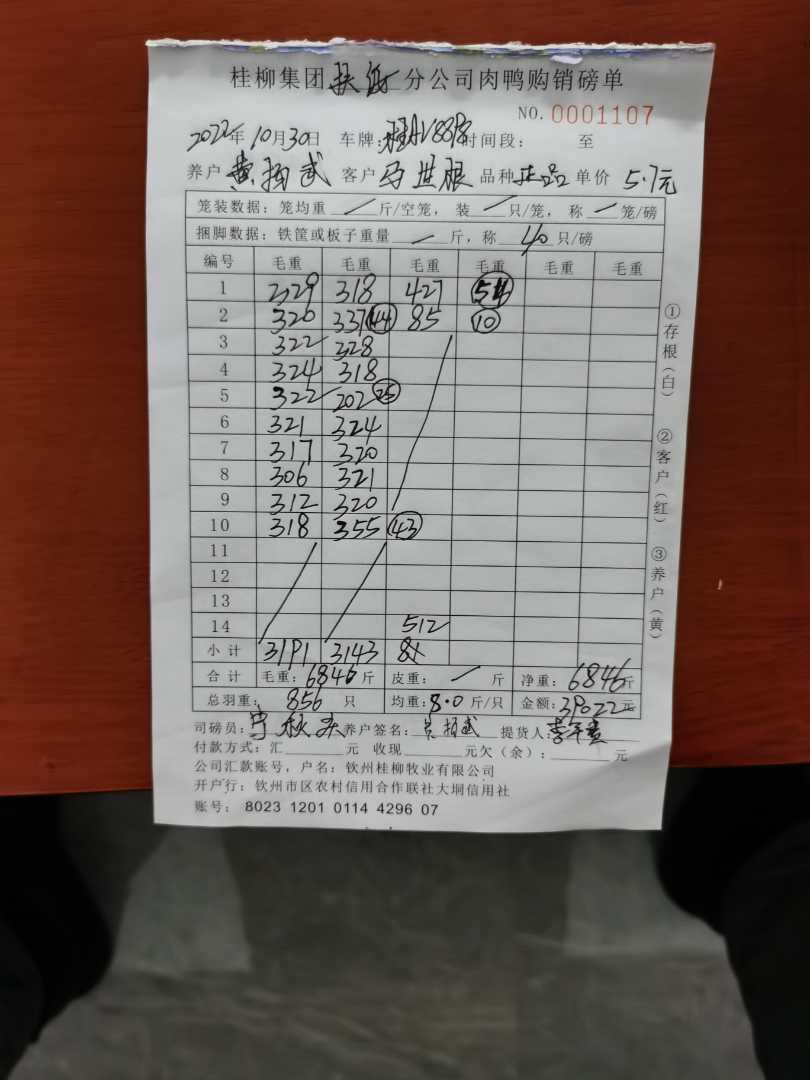 桂柳集团 扶绥 分公司肉鸭购销磅单
NO. 0001107
2022年10月30日 车牌: 时间段: 至
养户 黄柏武 客户 马世根 品种 正品 单价 5.7元
笼装数据: 笼均重 / 斤/空笼, 装 / 只/笼, 称 / 笼/磅
捆脚数据: 铁筐或板子重量 / 斤, 称 40 只/磅
编号 毛重 毛重 毛重 毛重 毛重 毛重
1 329 318 427 54
2 320 337 44 85 10
3 322 328
4 324 318
5 322 202 25
6 321 324
7 317 320
8 306 321
9 312 320
10 318 355 43
11
12
13
14 512
小计 3191 3143
合计 毛重: 6846斤 皮重: / 斤 净重: 6846斤
总羽重: 856 只 均重: 8.0斤/只 金额: 39022元
司磅员: 养户签名: 黄柏武 提货人:
付款方式: 汇 元 收现 元欠(余): 元
公司汇款账号, 户名: 钦州桂柳牧业有限公司
开户行: 钦州市区农村信用合作联社大垌信用社
账号: 8023 1201 0114 4296 07
①存根(白)
②客户(红)
③养户(黄)